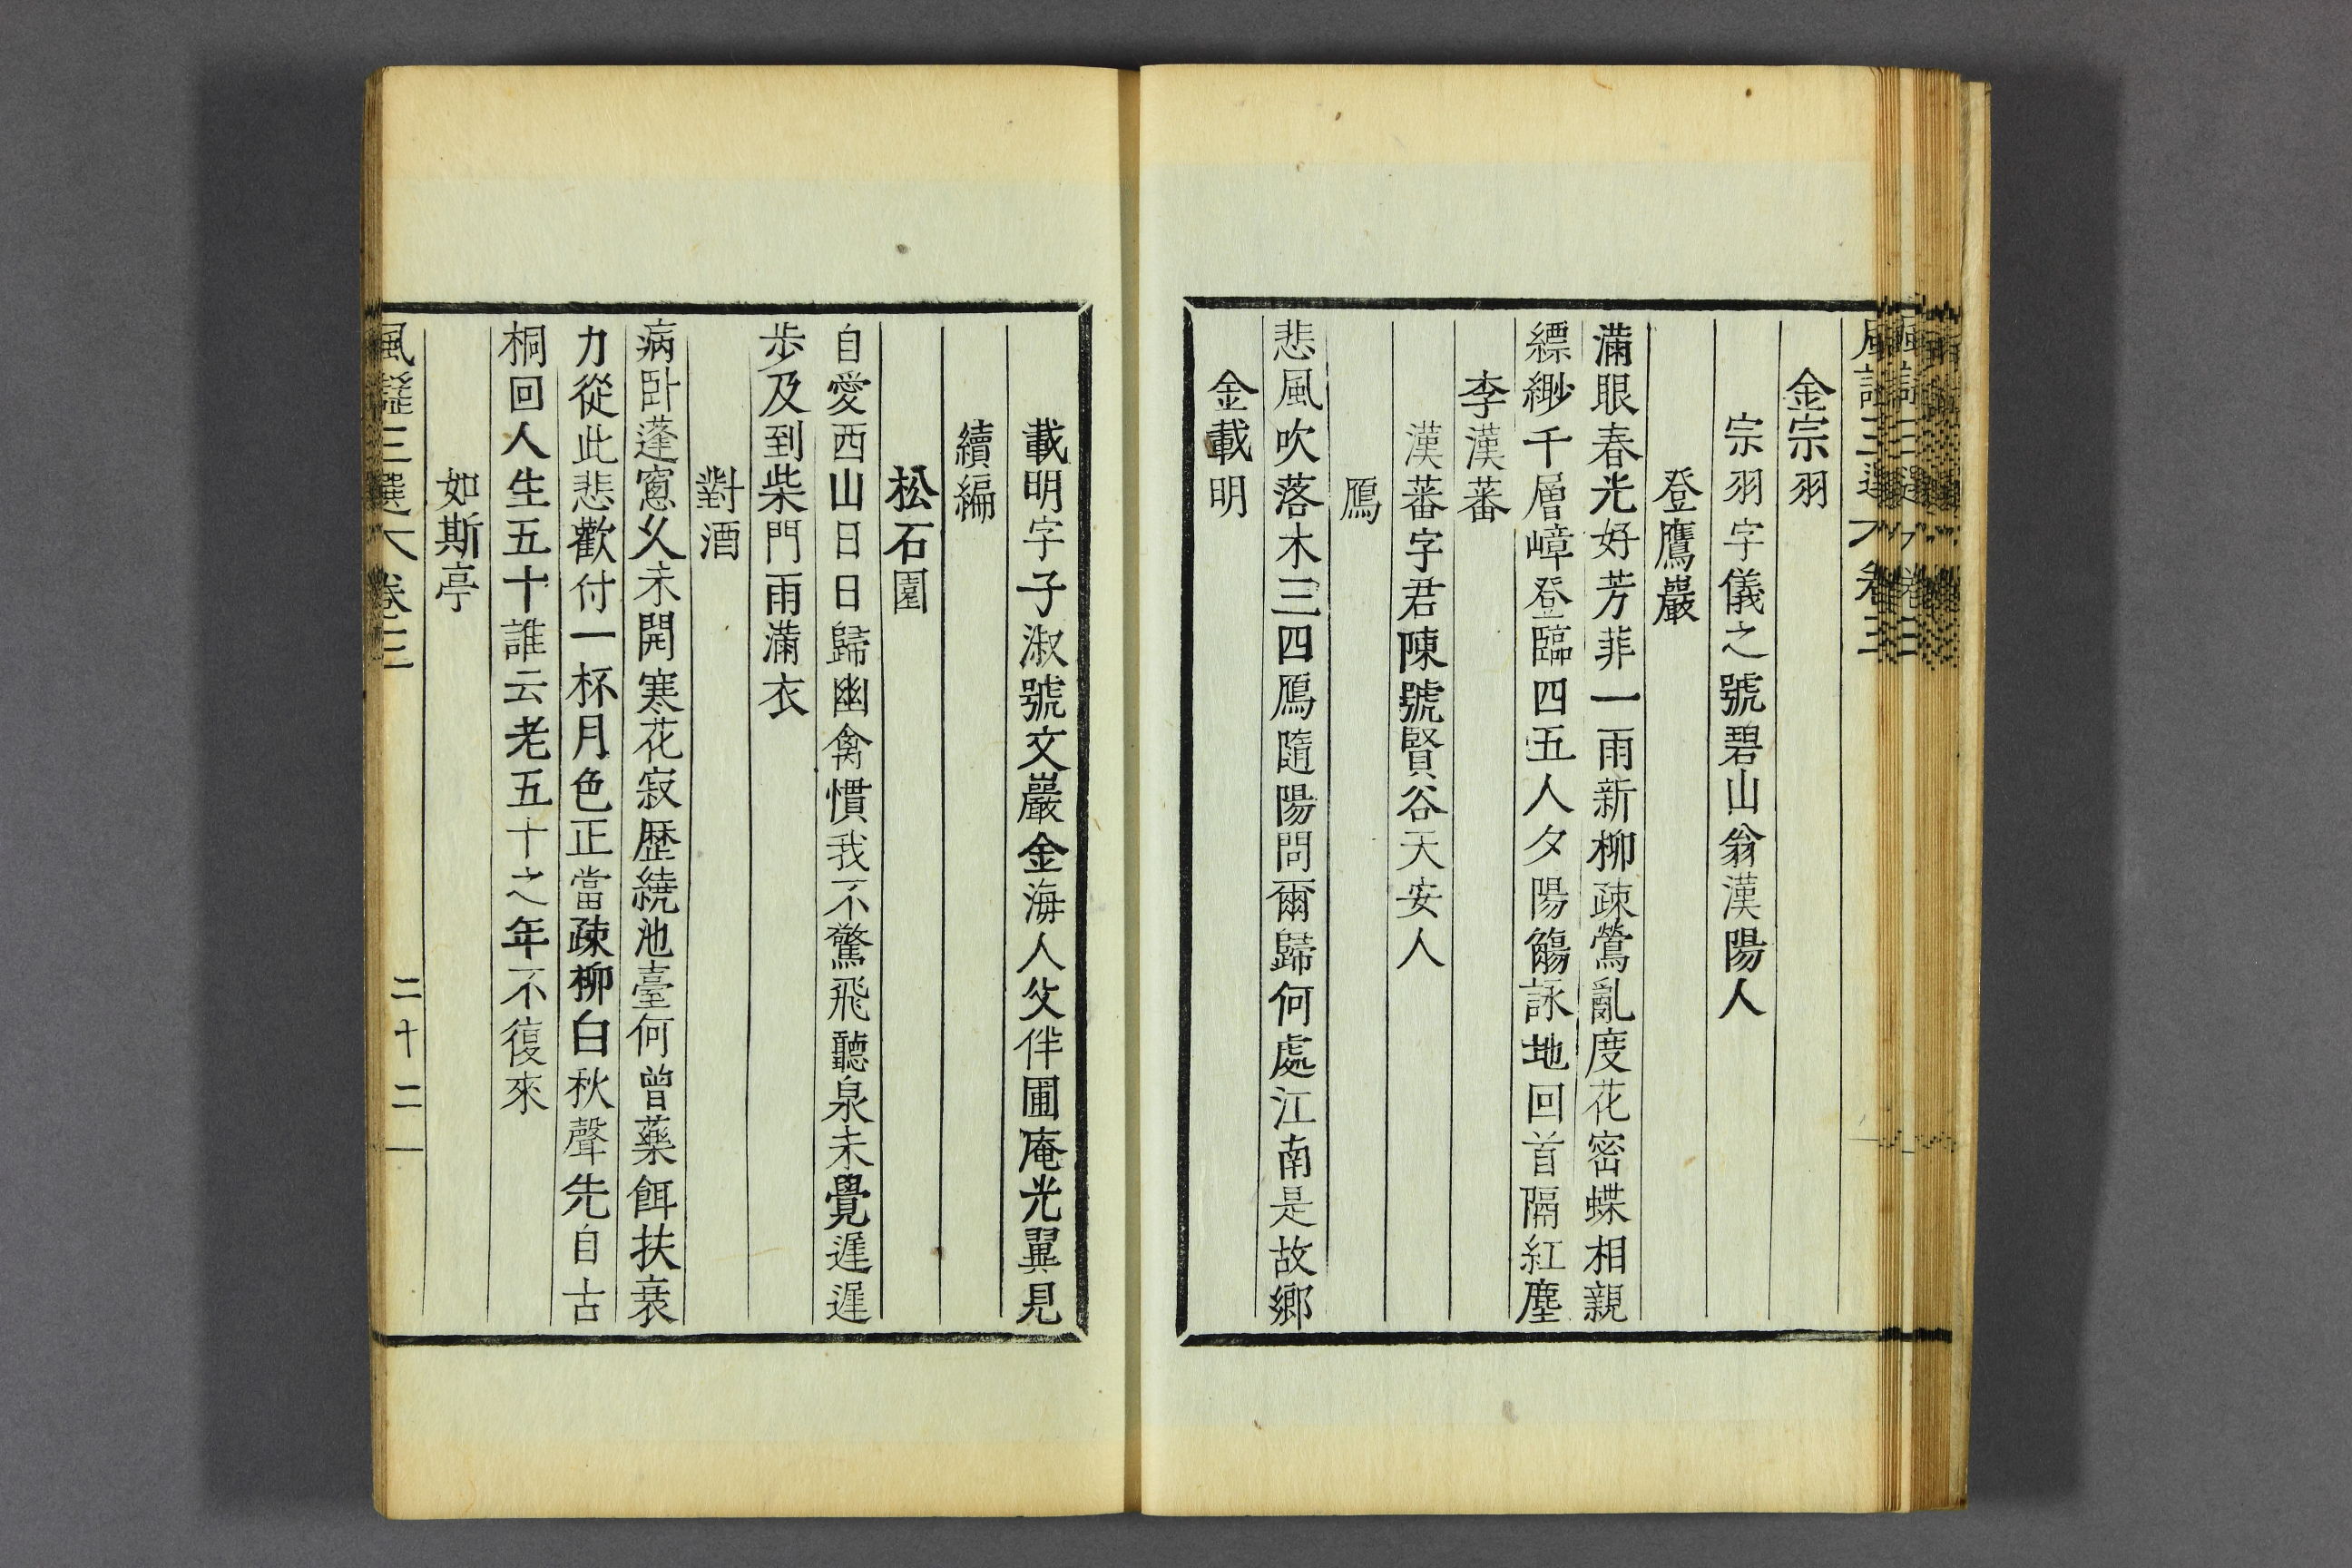 金宗羽
宗羽字儀之號碧山翁漢陽人
登鷹巖
滿眼春光好芳菲一雨新柳疎鶯亂度花密蝶相親
縹緲千層嶂登臨四五人夕陽觴詠地回首隔紅塵
李漢蕃
漢蕃字君陳號賢谷天安人
鴈
悲風吹落木三四鴈隨陽問爾歸何處江南是故鄉
金載明
載明字子淑號文巖金海人父伴圃庵光翼見
續編
松石園
自愛西山日日歸幽禽慣我不驚飛聽泉未覺遲遲
步及到柴門雨滿衣
對酒
病卧蓬窻久未開寒花寂歷繞池臺何曾藥餌扶衰
力從此悲歡付一杯月色正當疎柳白秋聲先自古
桐回人生五十誰云老五十之年不復來
如斯亭
風謠三選 卷三
二十二